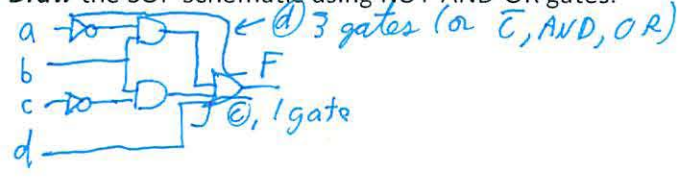 Draw the SOP schematic using NOT-AND-OR gates.
a
ⓓ 3 gates (or C̅, AND, OR)
b
F
c
ⓒ, 1 gate
d